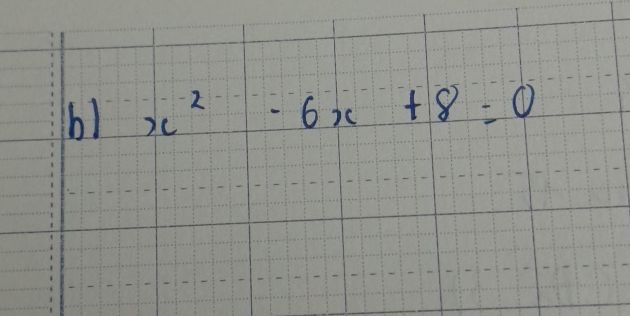 b) x² - 6x + 8 = 0